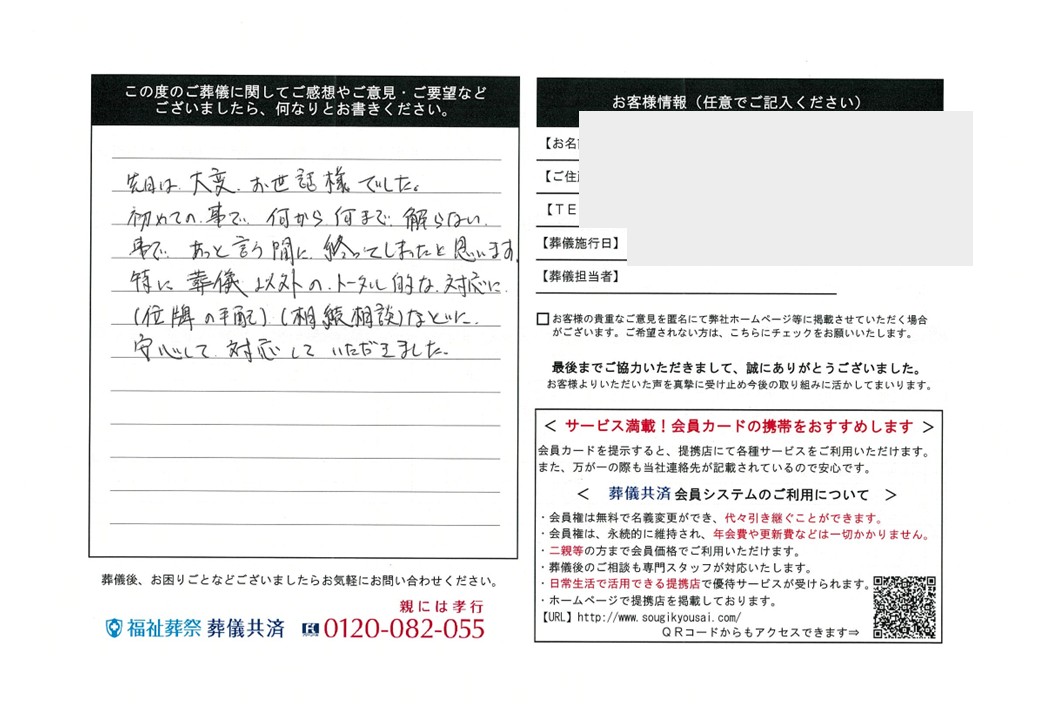 この度のご葬儀に関してご感想やご意見・ご要望など
ございましたら、何なりとお書きください。
先日は、大変、お世話様でした。
初めての、事で、何から何まで、解らない、
事で、あっと言う間に、終ってしまったと思います。
特に葬儀以外の、トータル的な、対応に、
(位牌の手配)(相続相談)などに、
安心して、対応していただきました。
葬儀後、お困りごとなどございましたらお気軽にお問い合わせください。
親には孝行
福祉葬祭 葬儀共済 0120-082-055
お客様情報（任意でご記入ください）
【お名
【ご住
【ＴＥ
【葬儀施行日】
【葬儀担当者】
□お客様の貴重なご意見を匿名にて弊社ホームページ等に掲載させていただく場合
がございます。ご希望されない方は、こちらにチェックをお願いいたします。
最後までご協力いただきまして、誠にありがとうございました。
お客様よりいただいた声を真摯に受け止め今後の取り組みに活かしてまいります。
＜ サービス満載！会員カードの携帯をおすすめします ＞
会員カードを提示すると、提携店にて各種サービスをご利用いただけます。
また、万が一の際も当社連絡先が記載されているので安心です。
＜ 葬儀共済 会員システムのご利用について ＞
・会員権は無料で名義変更ができ、代々引き継ぐことができます。
・会員権は、永続的に維持され、年会費や更新費などは一切かかりません。
・二親等の方まで会員価格でご利用いただけます。
・葬儀後のご相談も専門スタッフが対応いたします。
・日常生活で活用できる提携店で優待サービスが受けられます。
・ホームページで提携店を掲載しております。
【URL】http://www.sougikyousai.com/
ＱＲコードからもアクセスできます⇒